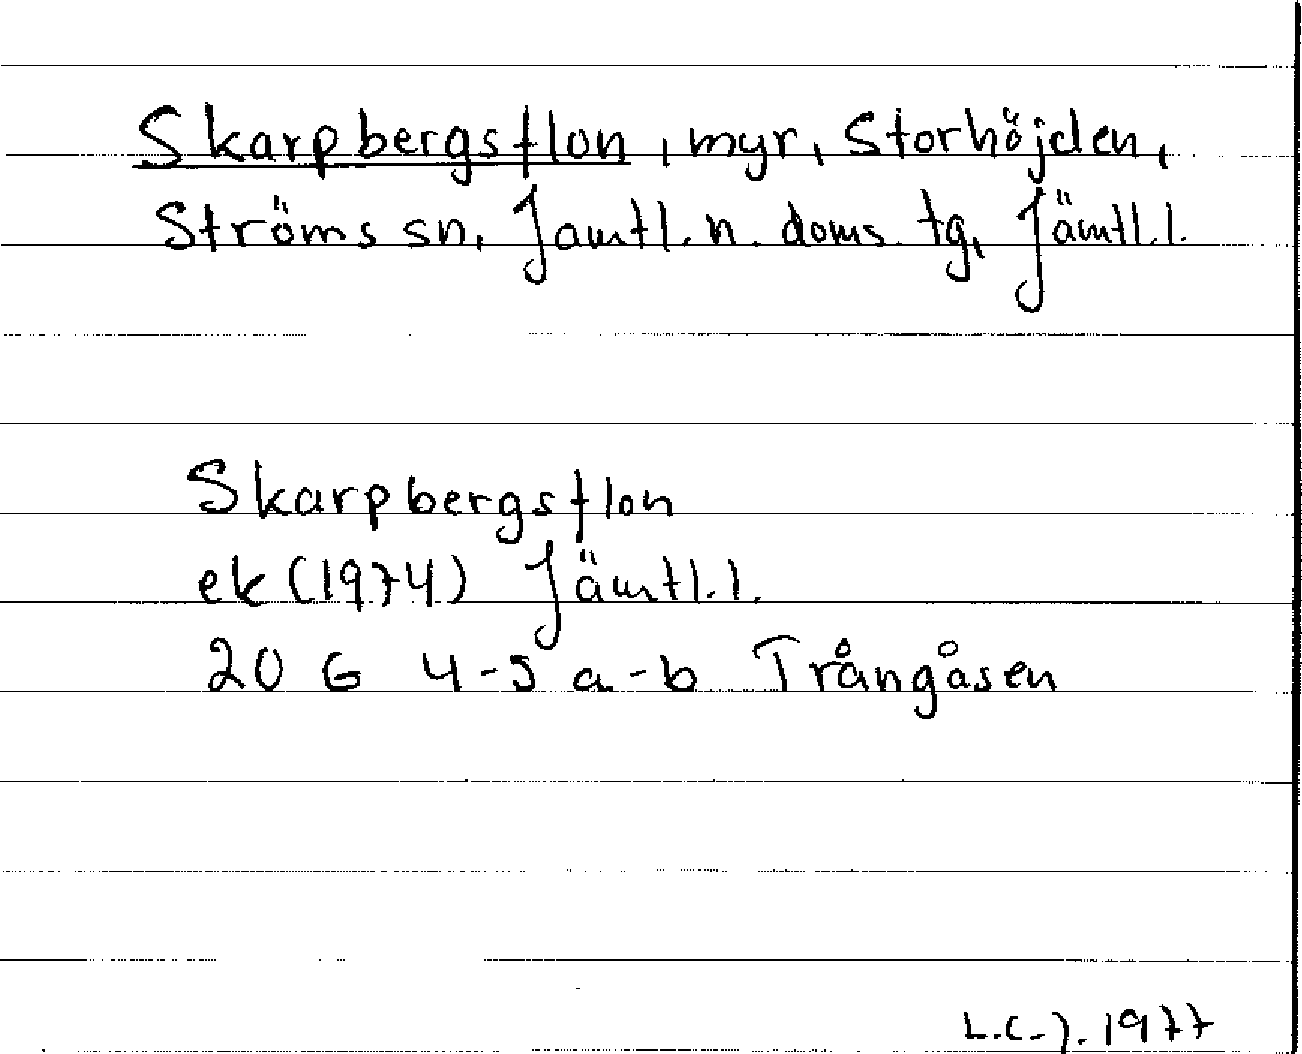 Skarpbergsflon, myr, Storhöjden,
Ströms sn, Jämtl. n. doms. tg, Jämtl. l.
Skarpbergsflon
ek (1974) Jämtl. l.
20 G 4-5 a-b Trångåsen
L.C-J. 1977